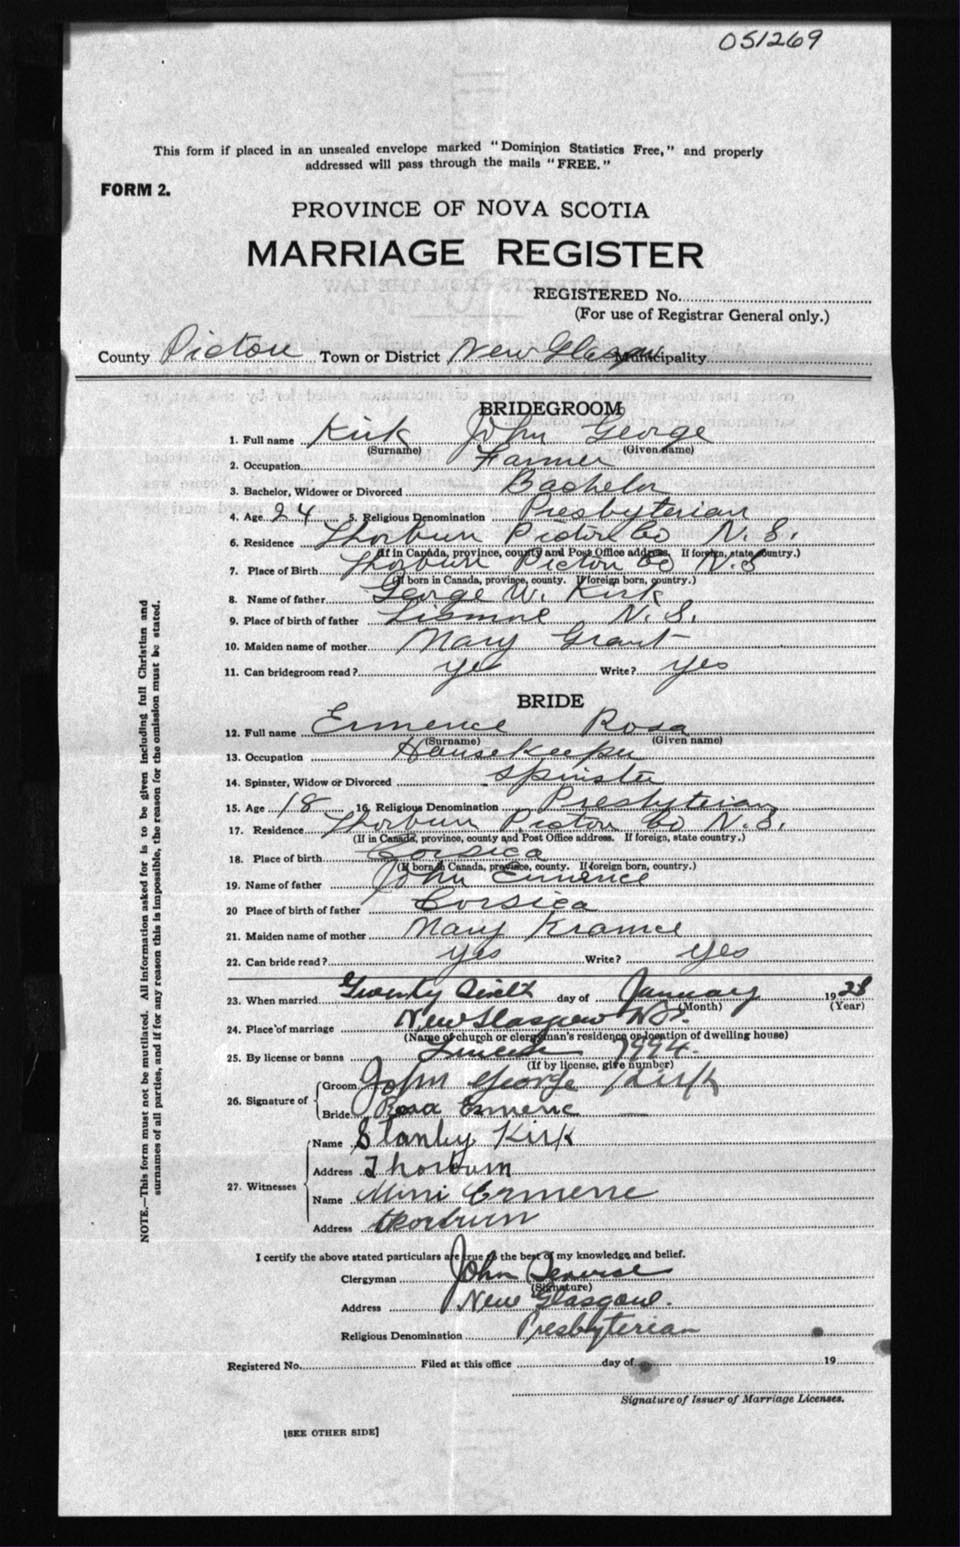 051269
This form if placed in an unsealed envelope marked "Dominion Statistics Free," and properly
addressed will pass through the mails "FREE."
FORM 2.
PROVINCE OF NOVA SCOTIA
MARRIAGE REGISTER
REGISTERED No.
(For use of Registrar General only.)
County Pictou Town or District New Glasgow Municipality
BRIDEGROOM
1. Full name Kirk John George
(Surname) (Given name)
2. Occupation Farmer
3. Bachelor, Widower or Divorced Bachelor
4. Age 24 5. Religious Denomination Presbyterian
6. Residence Thorburn Pictou Co N.S.
(If in Canada, province, county and Post Office address. If foreign, state country.)
7. Place of Birth Thorburn Pictou Co N.S
(If born in Canada, province, county. If foreign born, country.)
8. Name of father George W. Kirk
9. Place of birth of father Lismore N.S.
10. Maiden name of mother Mary Grant
11. Can bridegroom read? yes Write? yes
BRIDE
12. Full name Ermence Rosa
(Surname) (Given name)
13. Occupation Housekeeper
14. Spinster, Widow or Divorced Spinster
15. Age 18 16. Religious Denomination Presbyterian
17. Residence Thorburn Pictou Co N.S.
(If in Canada, province, county and Post Office address. If foreign, state country.)
18. Place of birth Corsica
(If born in Canada, province, county. If foreign born, country.)
19. Name of father John Ermence
20 Place of birth of father Corsica
21. Maiden name of mother Mary
22. Can bride read? yes Write? yes
23. When married Twenty day of January 19
(Month) (Year)
24. Place of marriage New Glasgow N.S.
(Name of church or clergyman's residence or location of dwelling house)
25. By license or banns License 7994
(If by license, give number)
26. Signature of Groom John George Kirk
Bride Rosa Ermenc
27. Witnesses Name Stanley Kirk
Address Thorburn
Name Mini Ermene
Address thorburn
I certify the above stated particulars are true to the best of my knowledge and belief.
Clergyman John
(Signature)
Address New Glasgow.
Religious Denomination Presbyterian
Registered No. Filed at this office day of 19
Signature of Issuer of Marriage Licenses.
[SEE OTHER SIDE]
NOTE.—This form must not be mutilated. All information asked for is to be given including full Christian and
surnames of all parties, and if for any reason this is impossible, the reason for the omission must be stated.